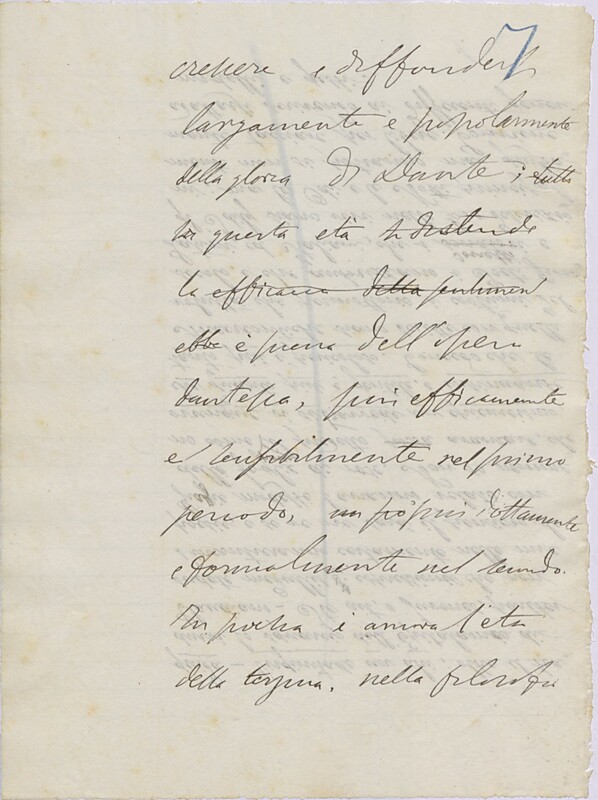 7
crescere e diffondersi
largamente e popolarmente
della gloria di Dante; tutta
questa età si distende
la efficacia della
ebbe è piena dell'opera
dantesca, più efficacemente
e sensibilmente nel primo
periodo, un po' più dottamente
e formalmente nel secondo.
In poesia è ancora l'età
della terzina. nella filosofia